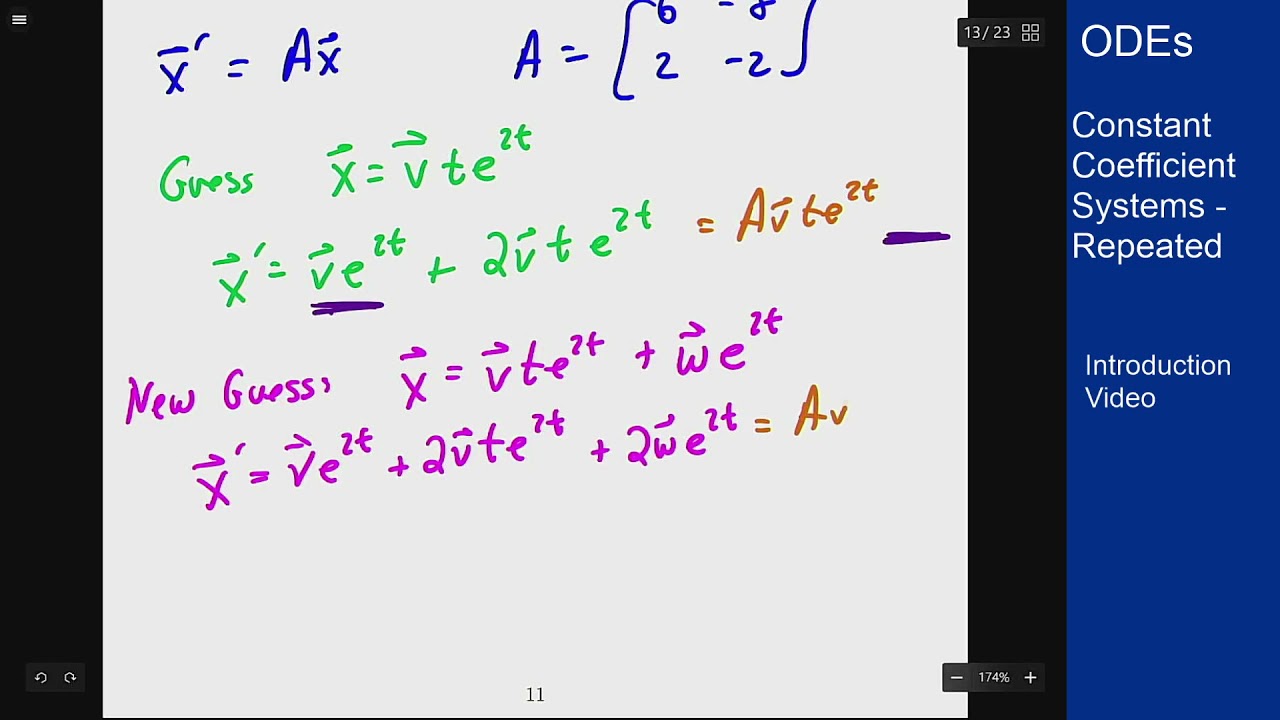 13 / 23
ODEs
Constant
Coefficient
Systems -
Repeated
Introduction
Video
x⃗' = Ax⃗ A = [6 -8
2 -2]
Guess x⃗ = v⃗ t e^{2t}
x⃗' = v⃗e^{2t} + 2v⃗ t e^{2t} = Av⃗te^{2t}
New Guess: x⃗ = v⃗te^{2t} + w⃗e^{2t}
x⃗' = v⃗e^{2t} + 2v⃗te^{2t} + 2w⃗e^{2t} = Av
174%
11